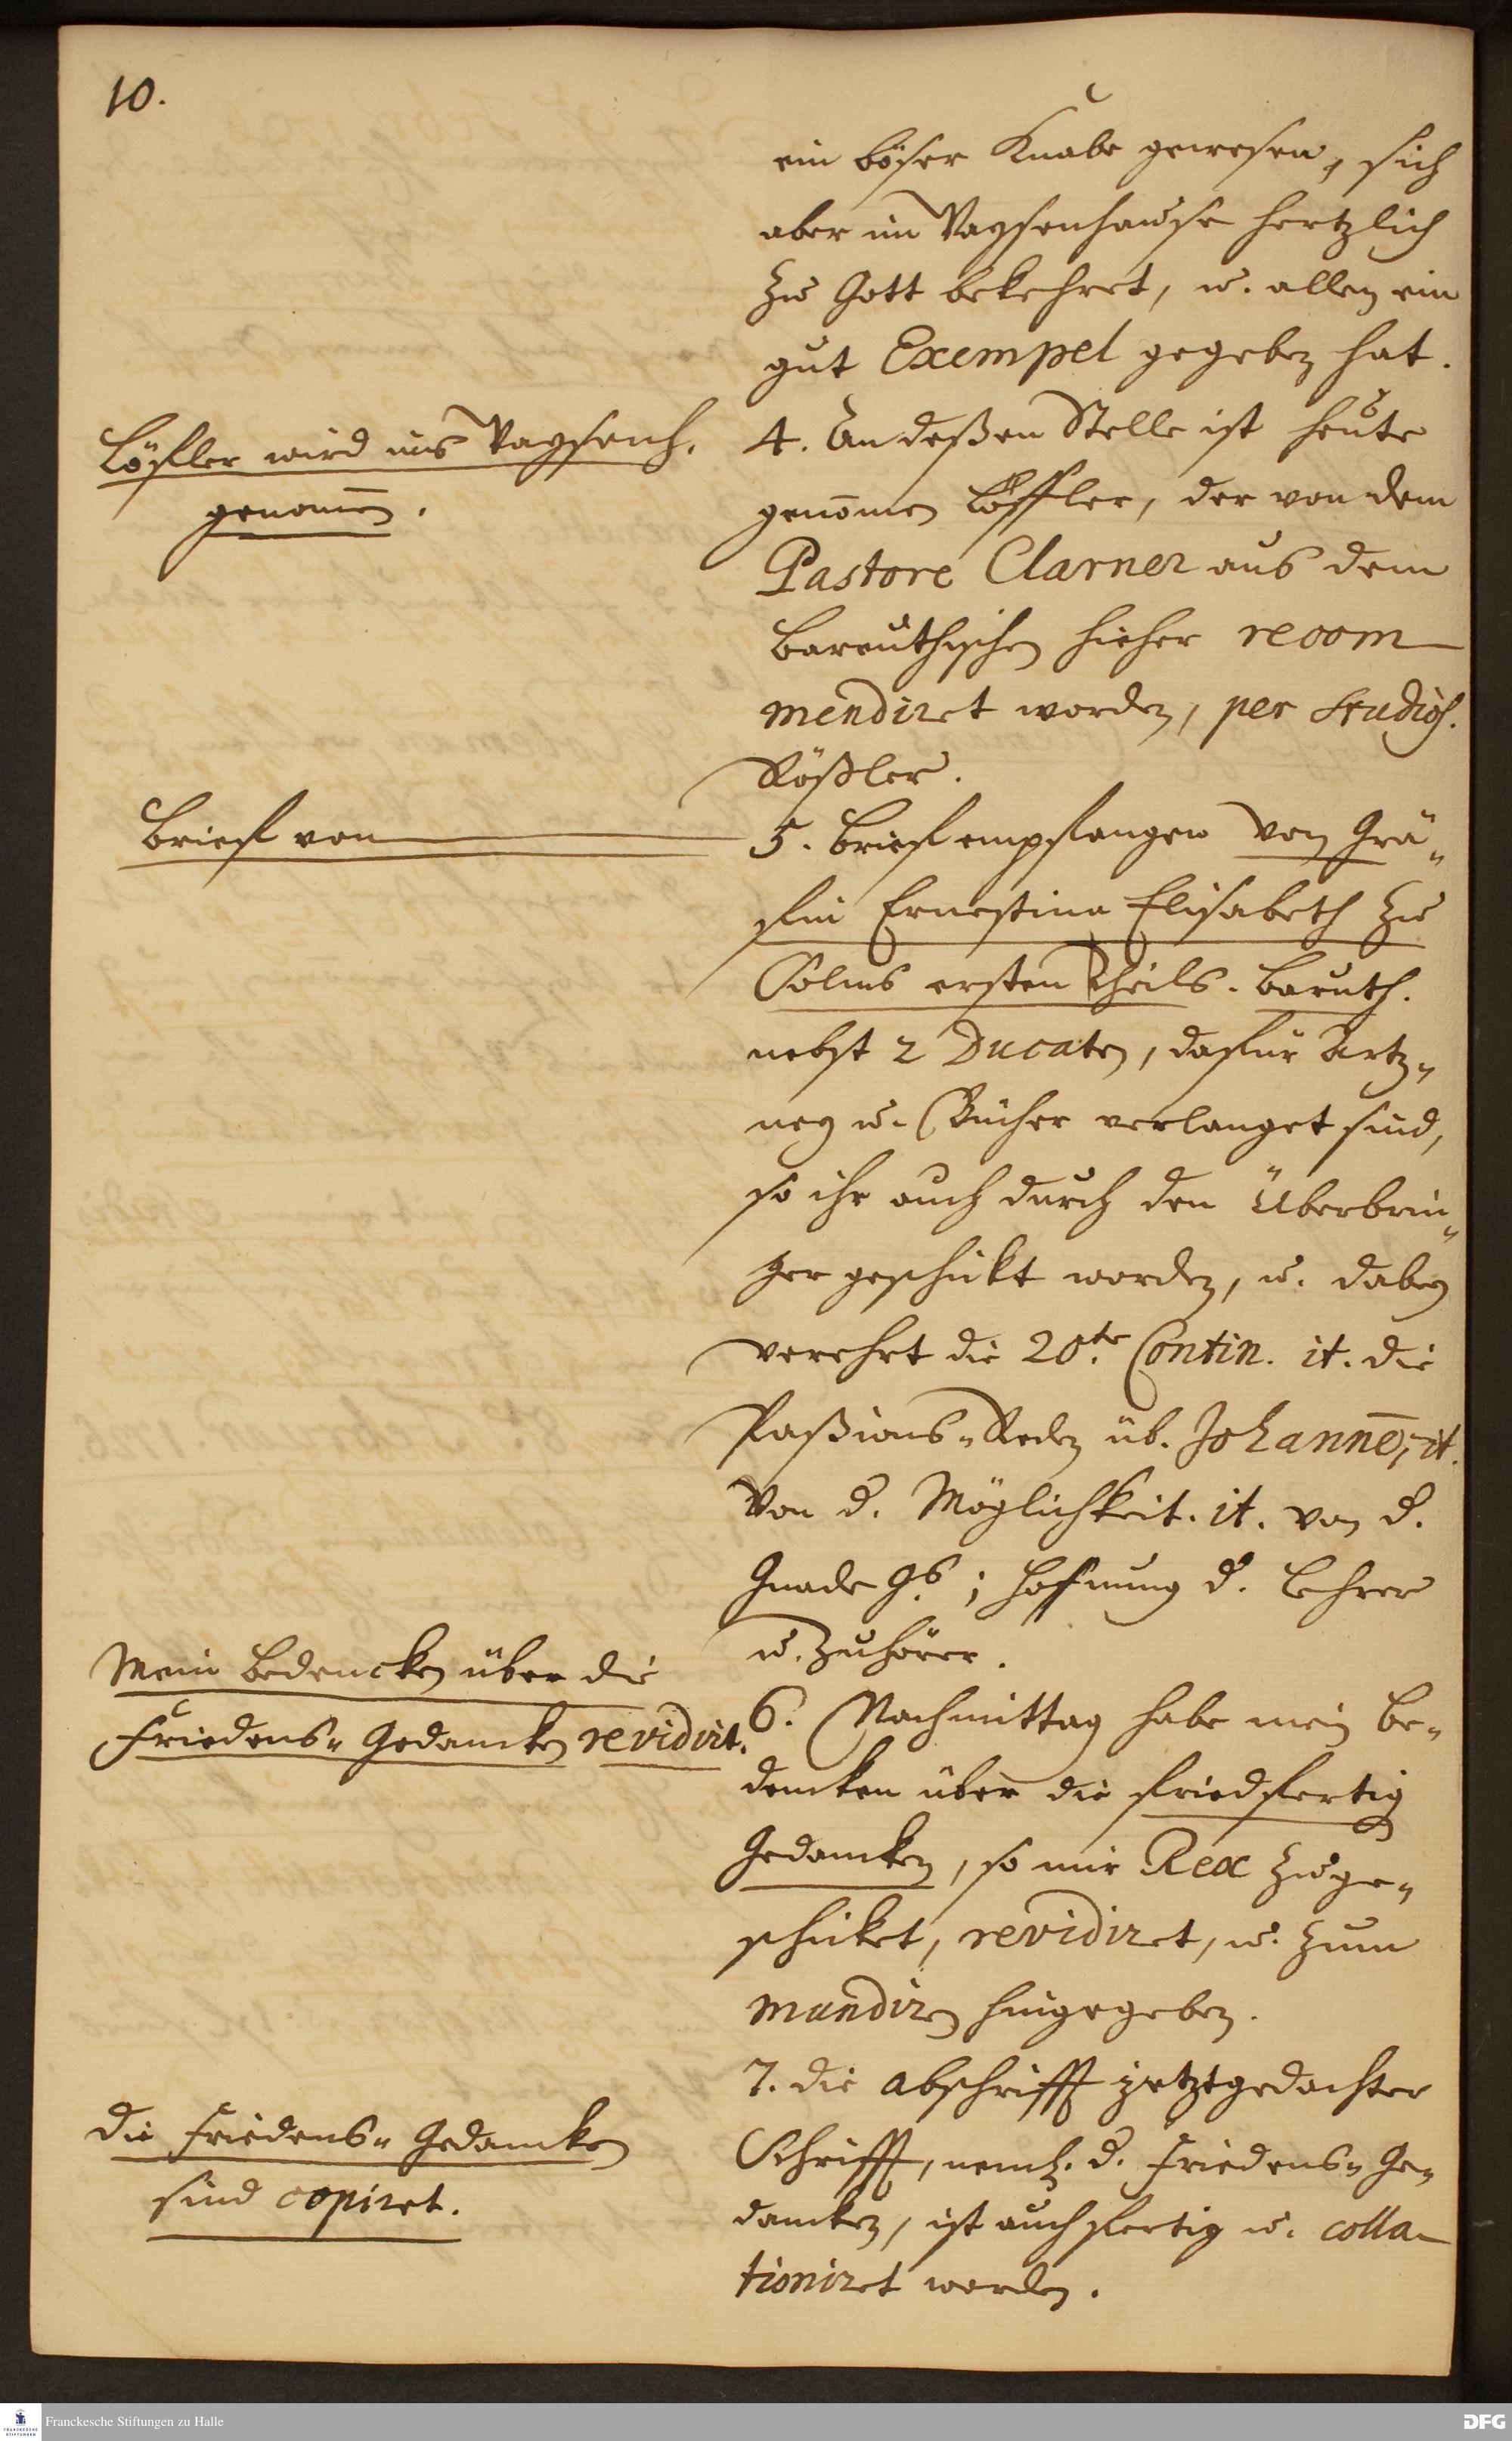 10.
ein böser Knabe gewesen, sich
aber im Waysenhause hertzlich
zu Gott bekehret, u. allen ein
gut Exempel gegeben hat.
Löfler wird ins Waysenh.
genomen.
4. An deßen Stelle ist heute
genomen Löffler, der von dem
Pastore Clarner aus dem
Bareuthischen hieher recom
mendiret worden, per Studios.
Rößler.
Brief von
5. Brief empfangen von Grä„
fin Ernestina Elisabeth zu
Solms ersten Theils. Baruth.
nebst 2 Ducaten, dafür Artz„
ney u. Bücher verlanget sind,
so ihr auch durch den Überbrin„
ger geschikt worden, u. dabey
verehrt die 20te. Contin. it. die
Paßions-Reden üb. Johanne, it.
von d. Möglichkeit. it. von d.
Gnade Gs; Hoffnung d. Lehrer
u. Zuhörer.
Mein Bedencken über die
Friedens-Gedancken revidirt.
6. Nachmittag habe mein Be„
dencken über die friedfertig
Gedancken, so mir Rex zuge„
schicket, revidiret, u. zum
mundiren hingegeben.
Die Friedens-Gedancken
sind copiret.
7. die Abschrifft jetztgedachter
Schrifft, neml. d. Friedens-Ge„
dancken, ist auch fertig u. colla
tioniret worden.
Franckesche Stiftungen zu Halle
DFG